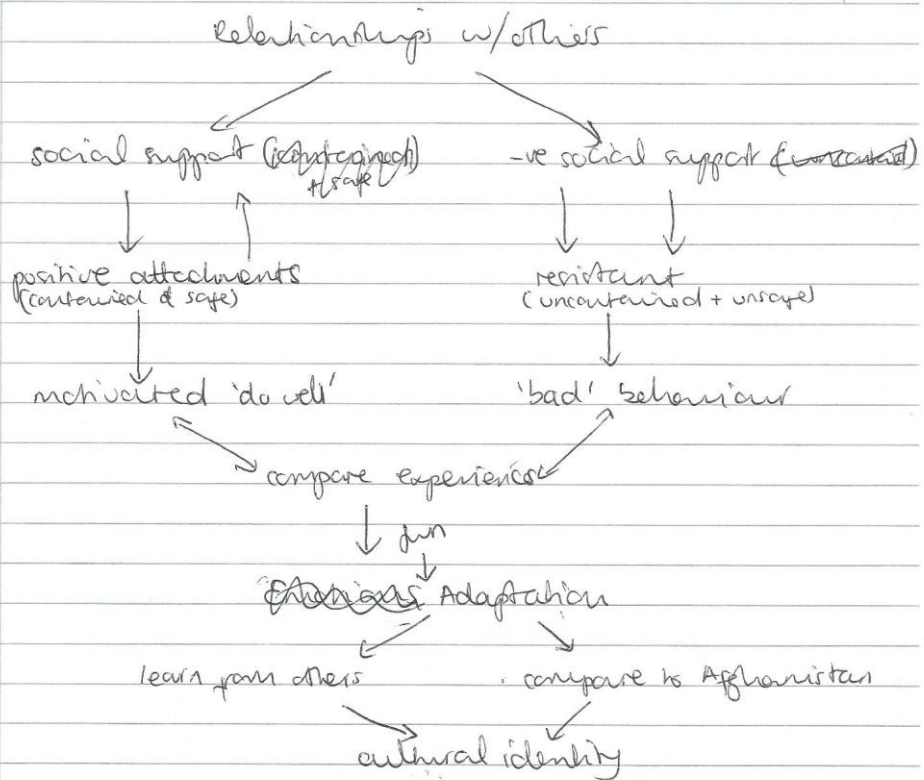 Relationships w/others
social support -ve social support
+ safe
positive attachments resistant
(contained & safe) (uncontained + unsafe)
motivated 'do well' 'bad' behaviour
compare experiences
fun
Adaptation
learn from others compare to Afghanistan
cultural identity